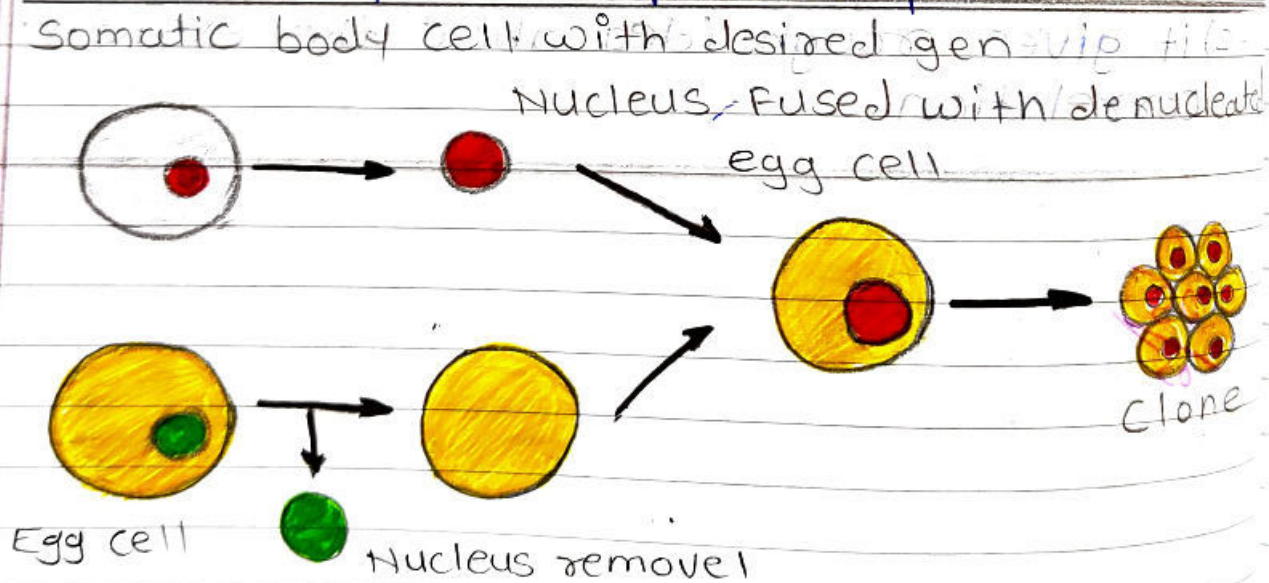 Somatic body cell with desired gen
Nucleus, Fused with denucleate
egg cell
Clone
Egg cell
Nucleus removel